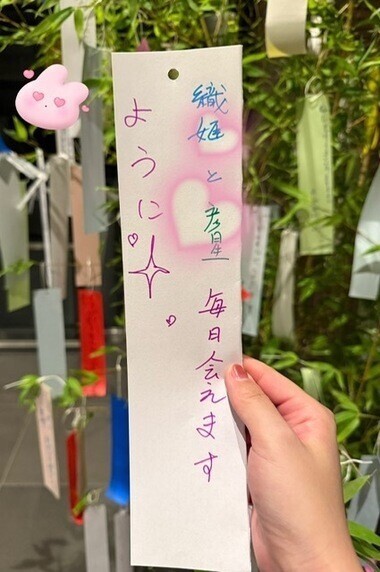 織姫と彦星 毎日会えます
ように